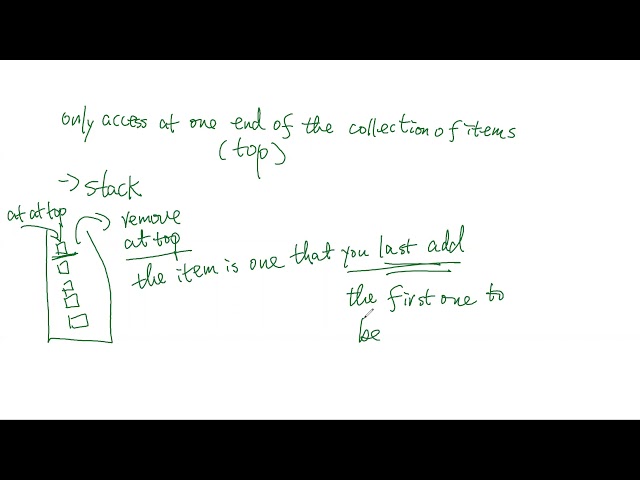 only access at one end of the collection of items
(top)
-> stack
at at top
remove
at top
the item is one that you last add
the first one to
be